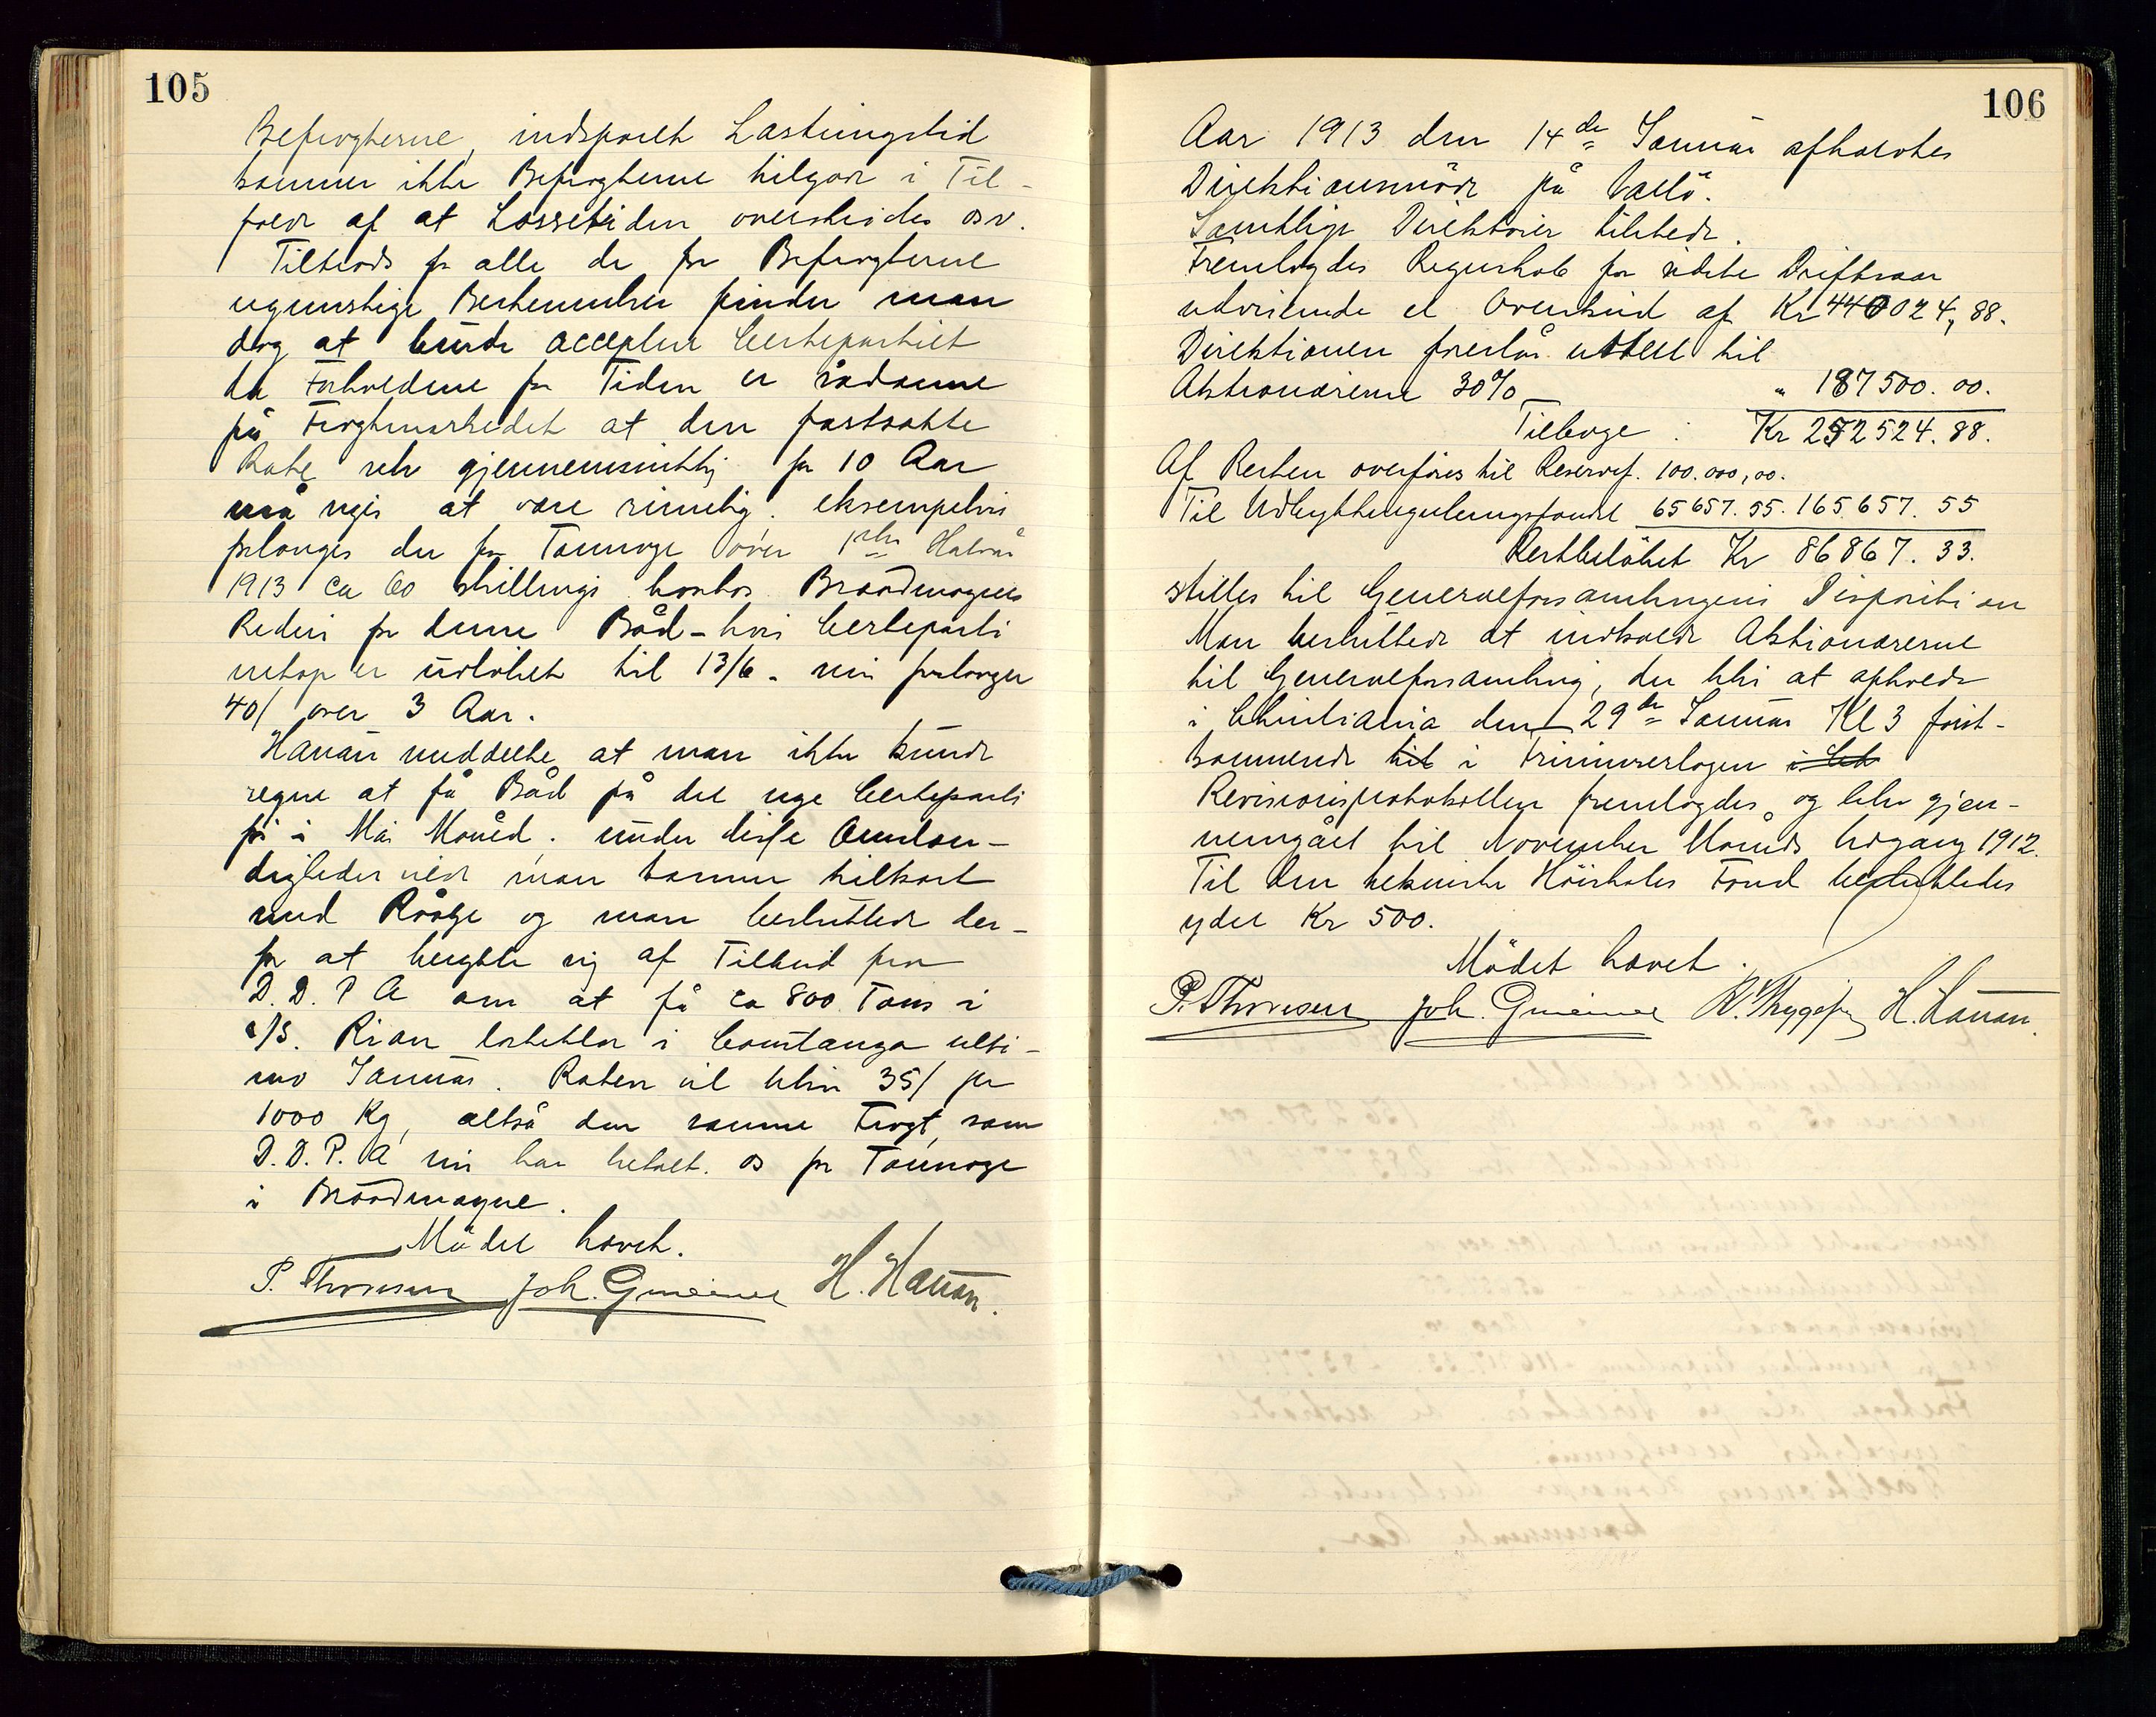 105
Befragterne, indsparet Lastningstid
kommer ikke Befragterne tilgode i Til-
fælde af at Lossetiden overskrides osv.
Tiltrods for alle de for Befragterne
ugunstige Bestemmelser finder man
dog at burde acceptere Certepartiet
da Forholdene for Tiden er sådanne
på Fragtmarkedet at den fastsatte
Rate selv gjennemsnittlig for 10 Aar
må siges at være rimelig. eksempelvis
forlanges der for Tonnage over 1ste Halvår
1913 ca 60 shillings hvorhos Broadmaynes
Rederi for denne Båd - hvis Certeparti
netop er udløbet til 13/6 - nu forlanger
40/ over 3 Aar.
Hanan meddelte at man ikke kunde
regne at få Båd på det nye Certeparti
før i Mai Måned. under disse Omstæn-
digheder vilde man komme tilkort
med Råolje og man besluttede der-
for at benytte sig af Tilbud fra
D.D.P.A om at få ca 800 Tons i
s/s. Rion lasteklar i Constanza ulti-
mo Januar. Raten vil blive 35/ per
1000 Kg, altså den samme Fragt, som
D.D.P.A nu har betalt os for Tonnage
i Broadmayne.
Mödet hævet.
P. Thoresen Joh. H. Hanan.
106
Aar 1913 den 14de Januar afholdtes
Direktionsmöde på Vallö.
Samtlige Direktörer tilstede.
Fremlagdes Regnskab for sidste Driftsaar
udvisende et Overskud af Kr 440024,88.
Direktionen foreslår uddelt til
Aktionærerne 30% " 187500.00.
Tilbage : Kr 252524.88.
Af Resten overföres til Reservef. 100.000,00.
Til Udbyttereguleringsfondet 65657.55. 165.657.55
Restbelöbet Kr 86867.33.
stilles til Generalforsamlingens Disposition
Man besluttede at indkalde Aktionærerne
til Generalforsamling, der blir at afholde
i Christiania den 29de Januar Kl 3 först-
kommende til i Frimurerlogen i
Revisionsprotokollen fremlagdes og blev gjen-
nemgået til November Måneds Udgang 1912.
Til den tekniske Höiskoles Fond besluttedes
ydet Kr 500.
Mödet hævet.
P. Thoresen Joh. H. Hanan.